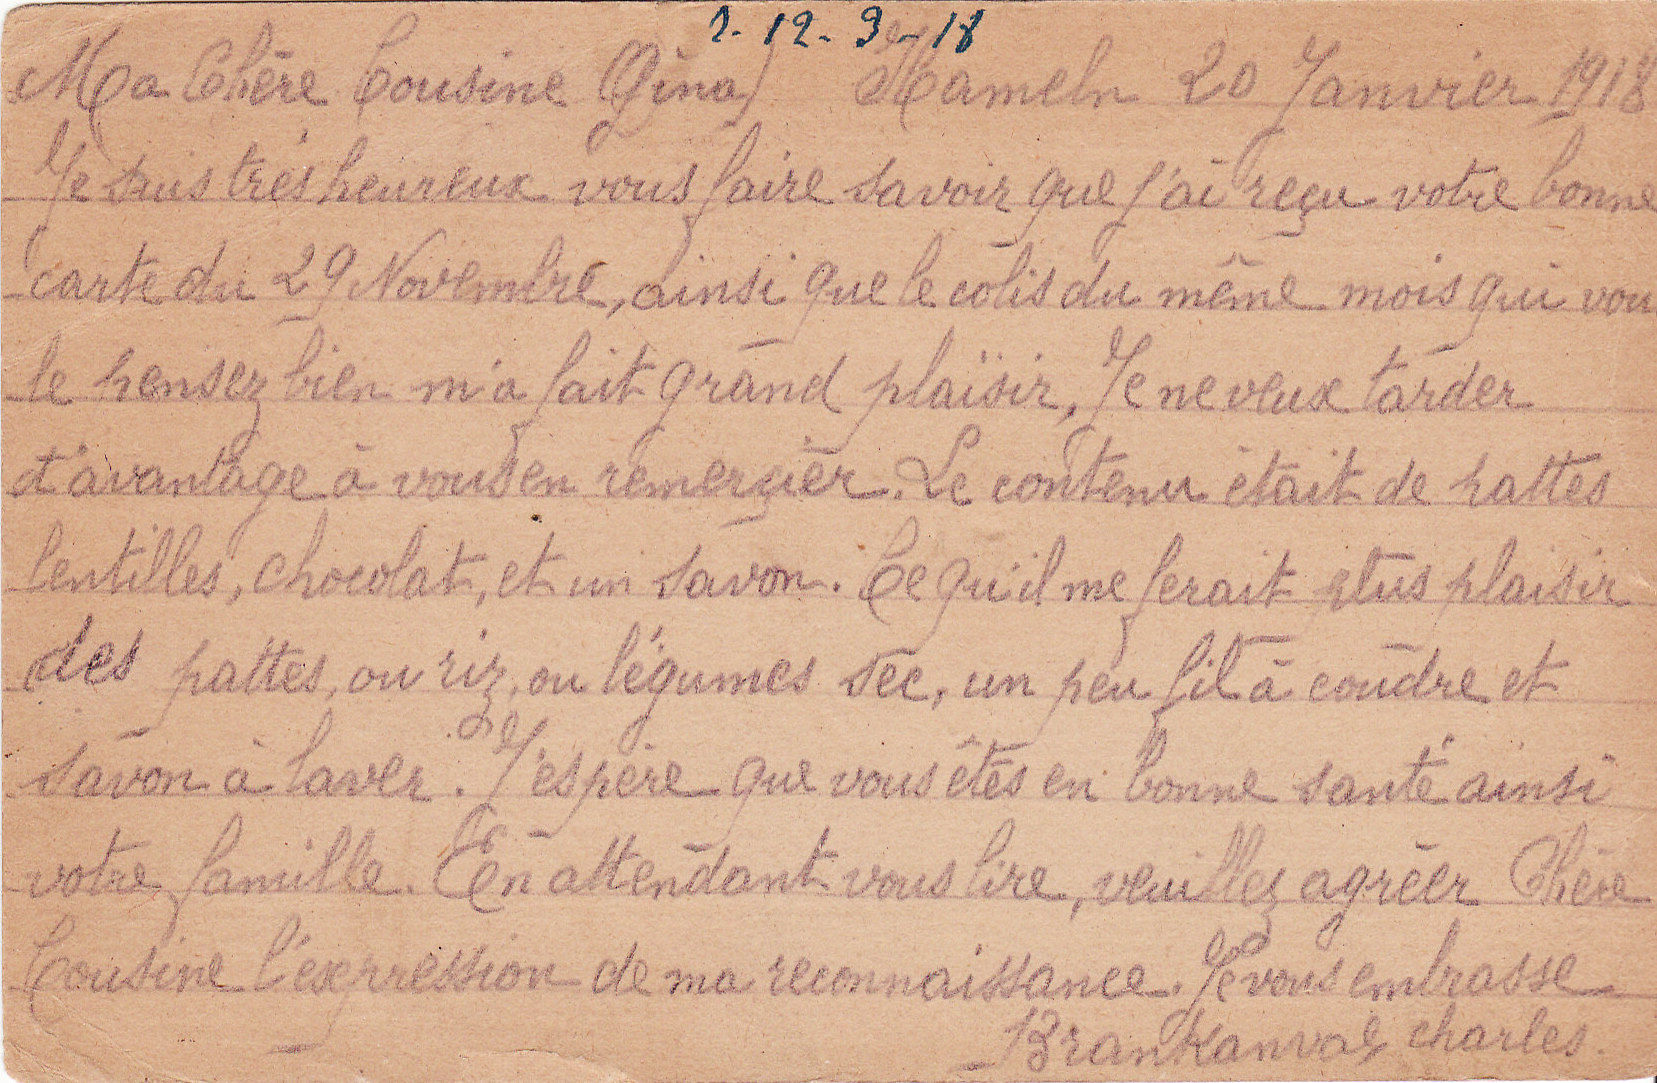 2. 12. 3 - 18
Ma Chère Cousine Gina) Hameln 20 Janvier 1918
Je suis très heureux vous faire savoir que j'ai reçu votre bonne
carte du 29 Novembre, ainsi que le colis du même mois qui vou
le pensez bien m'a fait grand plaisir, Je ne veux tarder
d'avantage à vous en remerçier. Le contenu était de pattes
lentilles, chocolat, et un savon. Ce qu'il me ferait plus plaisir
des pattes, ou riz, ou légumes sec, un peu fil à coudre et
savon à laver. J'espère que vous êtes en bonne santé ainsi
votre famille. En attendant vous lire, veuillez agréer Chère
Cousine l'expression de ma reconnaissance. Je vous embrasse
charles.